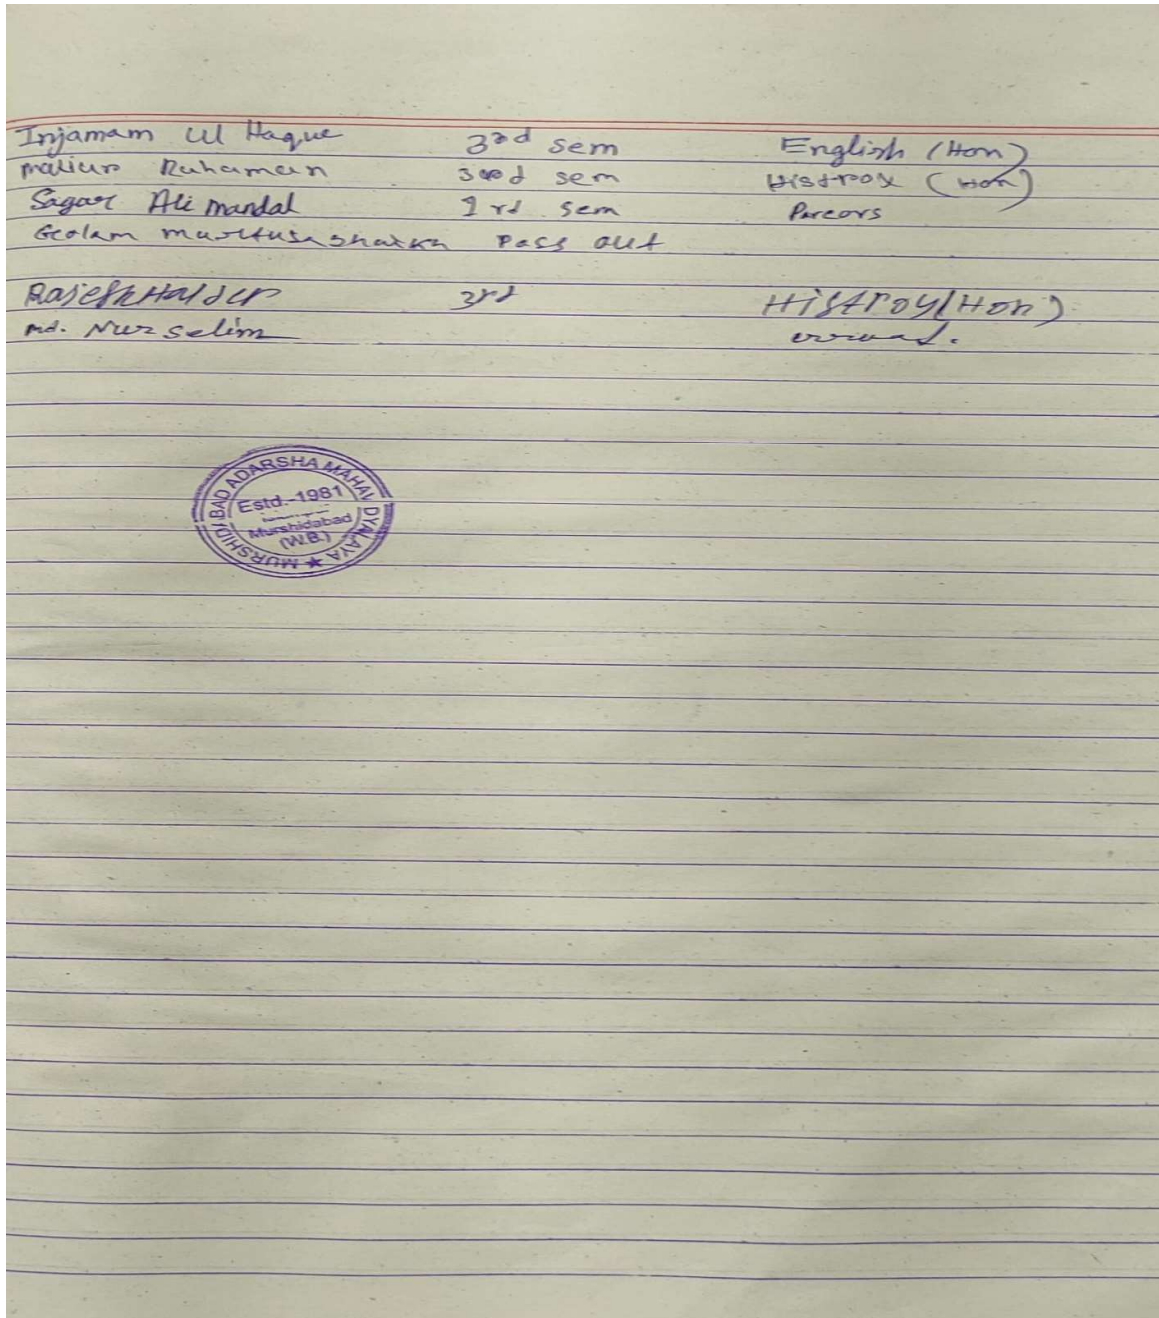 Injamam Ul Haque 3rd sem English (Hon)
Ruhaman 3rd sem Histroy (Hon)
Sagar Ali mandal 1rd sem
Pass out
Rajesh Halder 3rd Histroy (Hon)
md. Nur selim
MURSHIDABAD ADARSHA MAHAVIDYALAYA
Estd.-1981
Murshidabad
(W.B.)